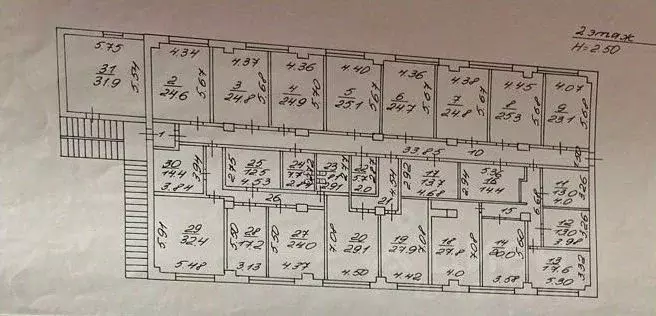 2 этаж
H=2.50
5.75 4.34 4.37 4.36 4.40 4.36 4.38 4.45 4.07
31 2 3 4 5 6 7 8 9
31.9 24.6 24.8 24.9 25.1 24.7 24.8 25.3 23.1
5.54 5.67 5.68 5.70 5.67 5.67 5.67 5.68 5.68
1 33.85 10 1.50
30 25 24 23 22 17 16 11
14.4 12.5 13.7 14.4 13.0
3.84 3.94 2.75 4.53 2.91 2.0 4.54 2.92 4.68 2.94 6.68 4.0 3.26
26 21 15
29 28 27 20 19 18 14 12
32.4 17.2 24.0 29.1 27.9 27.8 20.0 13.0
5.91 5.50 5.50 7.08 7.08 7.08 5.60 3.98 3.26
13
17.6
5.48 3.13 4.37 4.50 4.42 4.0 3.58 5.30 3.32